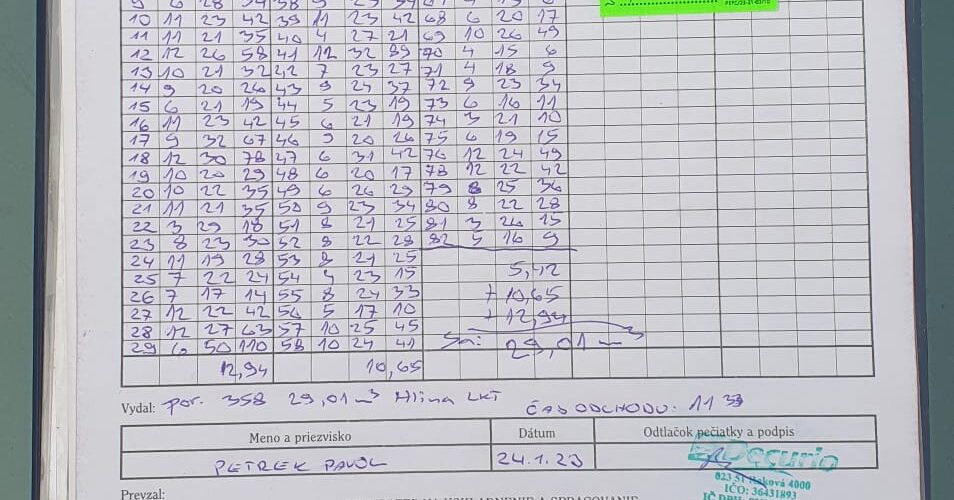 10 11 23 42 39 11 23 42 68 6 20 17
11 11 21 35 40 4 27 21 69 10 26 49
12 12 26 58 41 12 32 89 70 4 15 6
13 10 21 32 42 7 23 27 71 4 18 9
14 9 20 26 43 9 24 37 72 9 23 34
15 6 21 19 44 5 23 19 73 6 16 11
16 11 23 42 45 6 21 19 74 3 21 10
17 9 32 67 46 9 20 26 75 6 19 15
18 12 30 78 47 6 31 42 76 12 24 49
19 10 20 29 48 6 20 17 78 12 22 42
20 10 22 35 49 6 26 29 79 8 25 36
21 11 21 35 50 9 23 34 80 8 22 28
22 3 29 18 51 8 21 25 81 3 26 15
23 8 23 30 52 8 22 28 82 5 16 9
24 11 19 28 53 8 21 25
5,42
25 7 22 24 54 4 23 15
26 7 17 14 55 8 24 33 + 10,65
27 12 22 42 56 5 17 10 + 12,94
28 12 27 63 57 10 25 45
29 6 50 110 58 10 24 41 Sa: 29,01 m3
12,94 10,65
Vydal: por. 358 29,01 m3 Hlina LKT ČAS ODCHODU: 11 39
Meno a priezvisko Dátum Odtlačok pečiatky a podpis
PETREK PAVOL 24.1.23 Decurio
023 51 Raková 4000
IČO: 36431893
Prevzal: